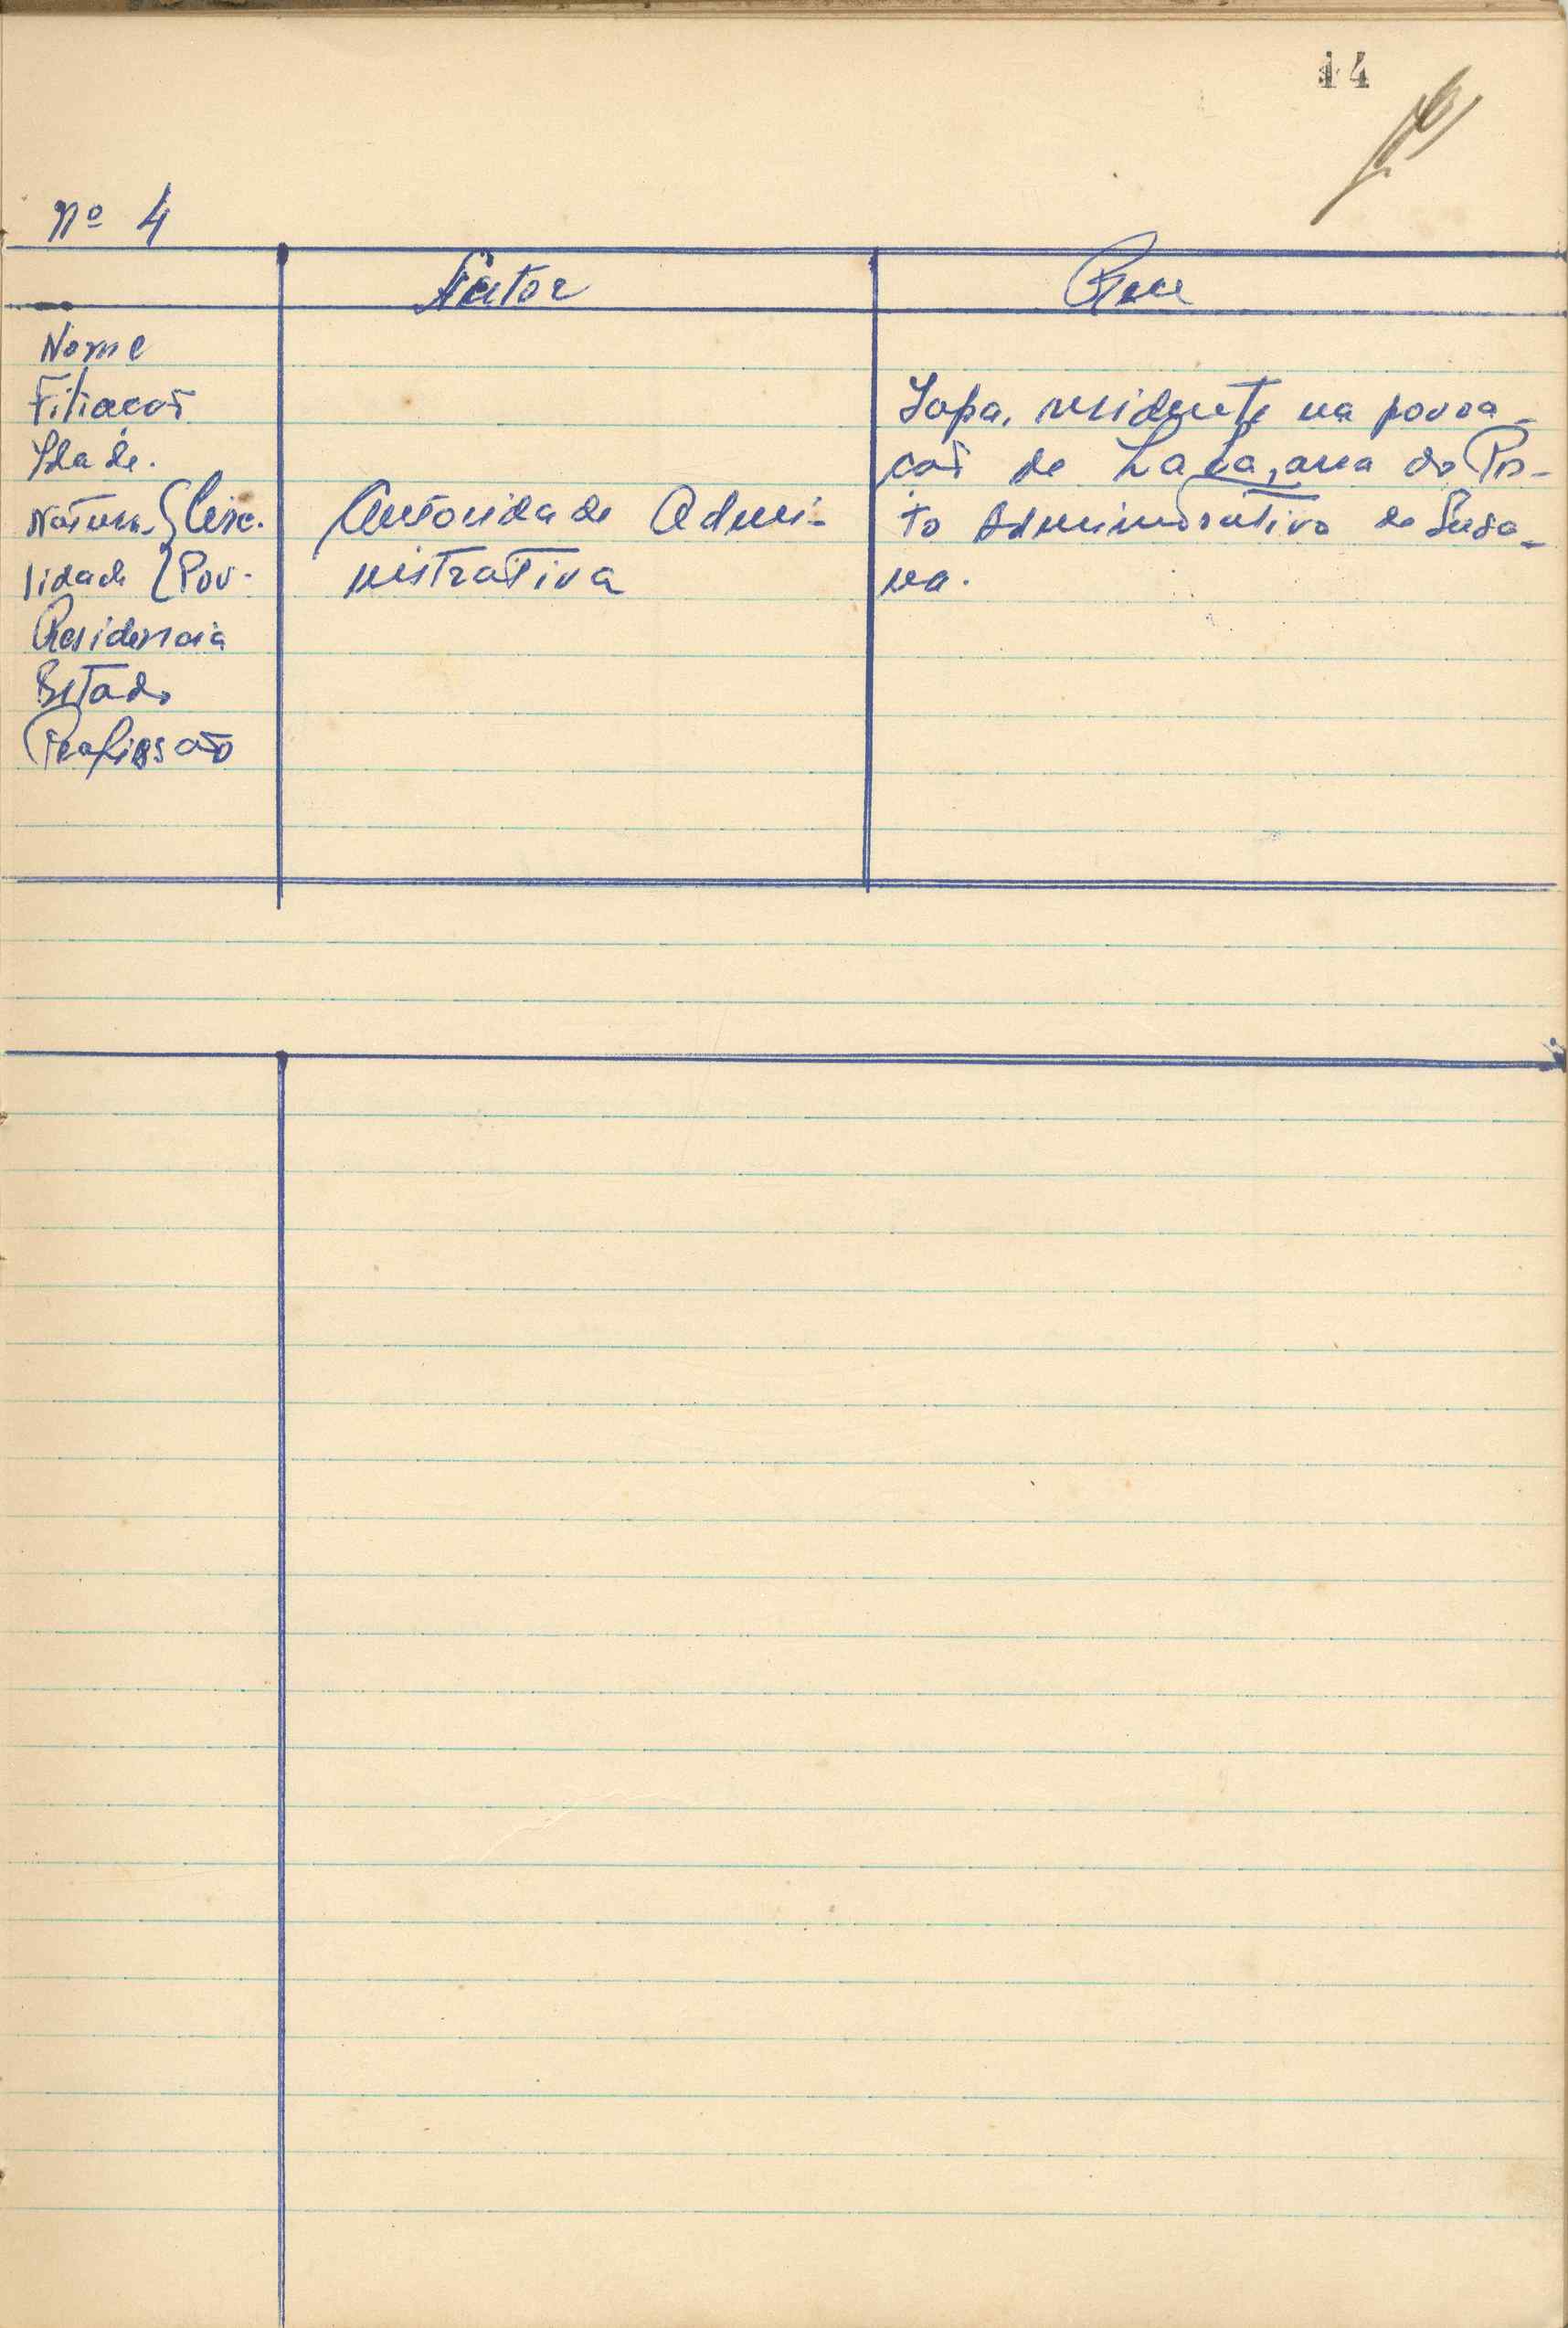 14
Nº 4
Autor
Reu
Nome
Filiação
Idade.
Natura- { Circ.
lidade { Pov.
Residencia
Estado
Profissão
Autoridade Admi-
nistrativa
residente na povoa-
ção de area do Pos-
to Administrativo de Susa-
na.